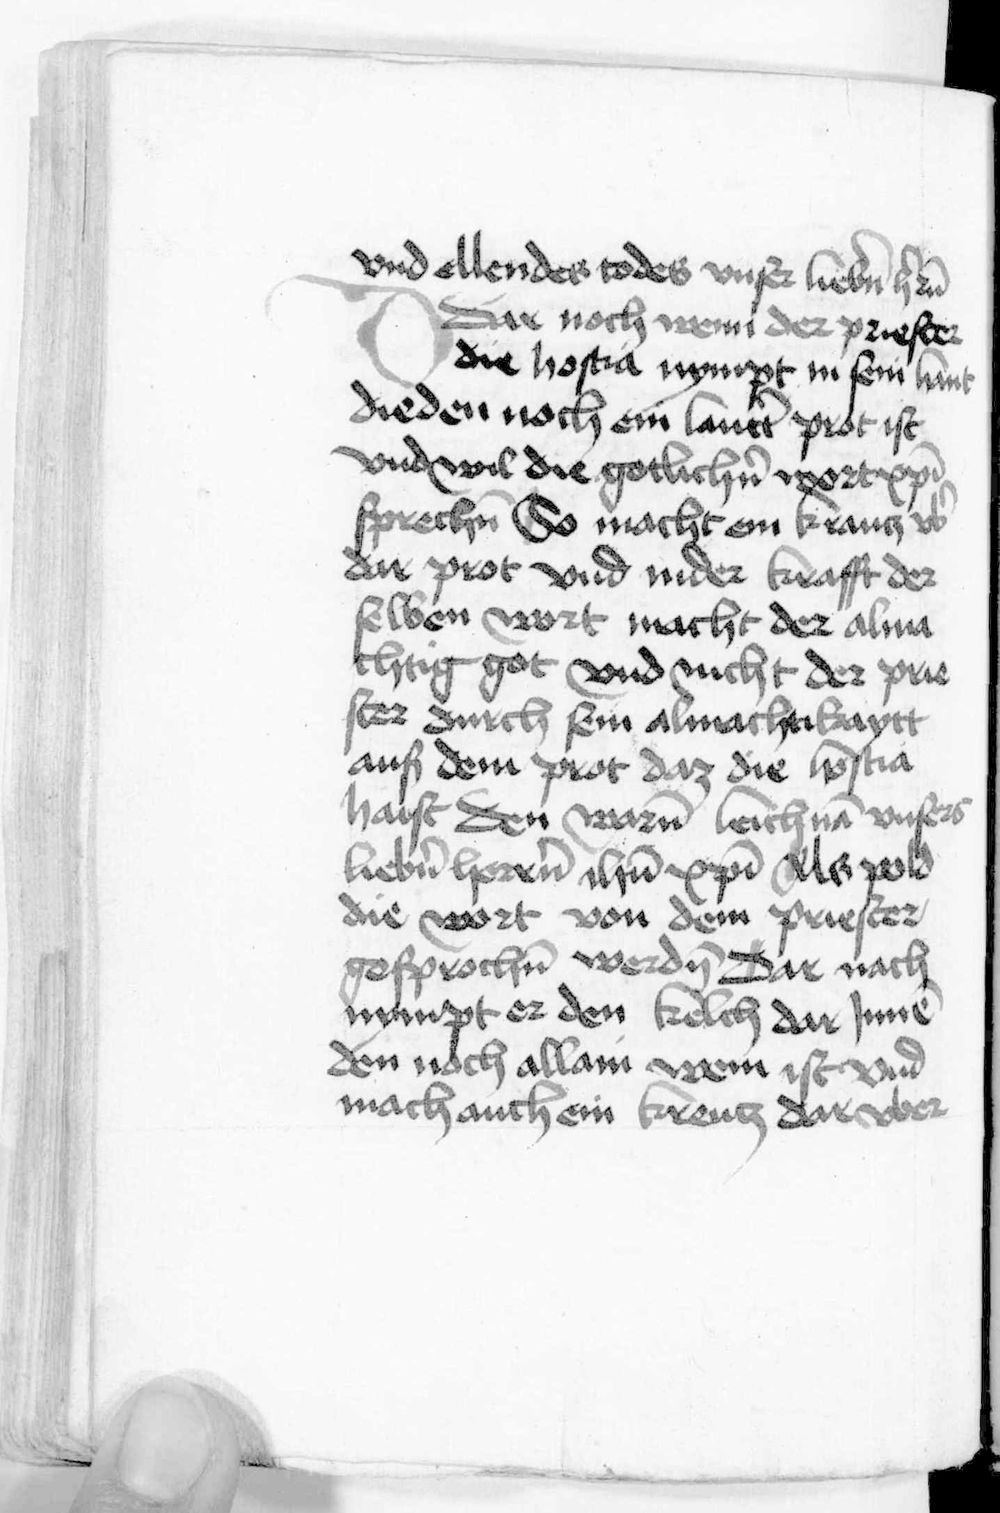 vnd ellendes todes vnser liebn̄ h̄rn̄
Dar noch wenn der priester
die hostia nympt in sein hant
die den noch ein lautt̄ prot ist
vnd wil die gotlichn̄ wort xpī
sprechn̄ So macht ein kreutz vb̄
dar prot vnd in der krafft der
selben wort macht der alme
chtig got vnd nicht der prie
ster durch sein almachtikaytt
auß dem prot daz die hostia
haist Den warn̄ leichnā vnsers
liebn̄ herrn̄ ihū xpī Als pold
die wort von dem priester
gesprochn̄ werdn̄ Dar nach
nympt er den kelch dar Jnnē
den noch allain wein ist vnd
mach auch ein kreutz dar vber